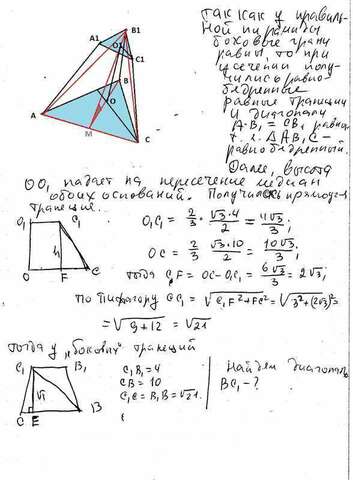 B1
A1
O1
C1
B
A
O
M
C
Так как у правиль-
ной пирамиды
боковые грани
равны, то при
усечении полу-
чились равно-
бедренные
равные трапеции
и диагонали
AB₁ = CB₁ равны
т. е. ΔAB₁C -
равнобедренный.
Далее, высота
OO₁ падает на пересечение медиан
обоих оснований. Получилась прямоуг-я
трапеция.
O₁ C₁
h
O F C
O₁C₁ = 2/3 · √3·4/2 = 4√3/3;
OC = 2/3 · √3·10/2 = 10√3/3;
тогда CF = OC - O₁C₁ = 6√3/3 = 2√3;
по Пифагору CC₁ = √(C₁F² + FC²) = √(3² + (2√3)²) =
= √(9+12) = √21
тогда у "боковых" трапеций
C₁ B₁
C E B
C₁B₁ = 4
CB = 10
C₁C = B₁B = √21.
Найдем диагональ
BC₁ - ?